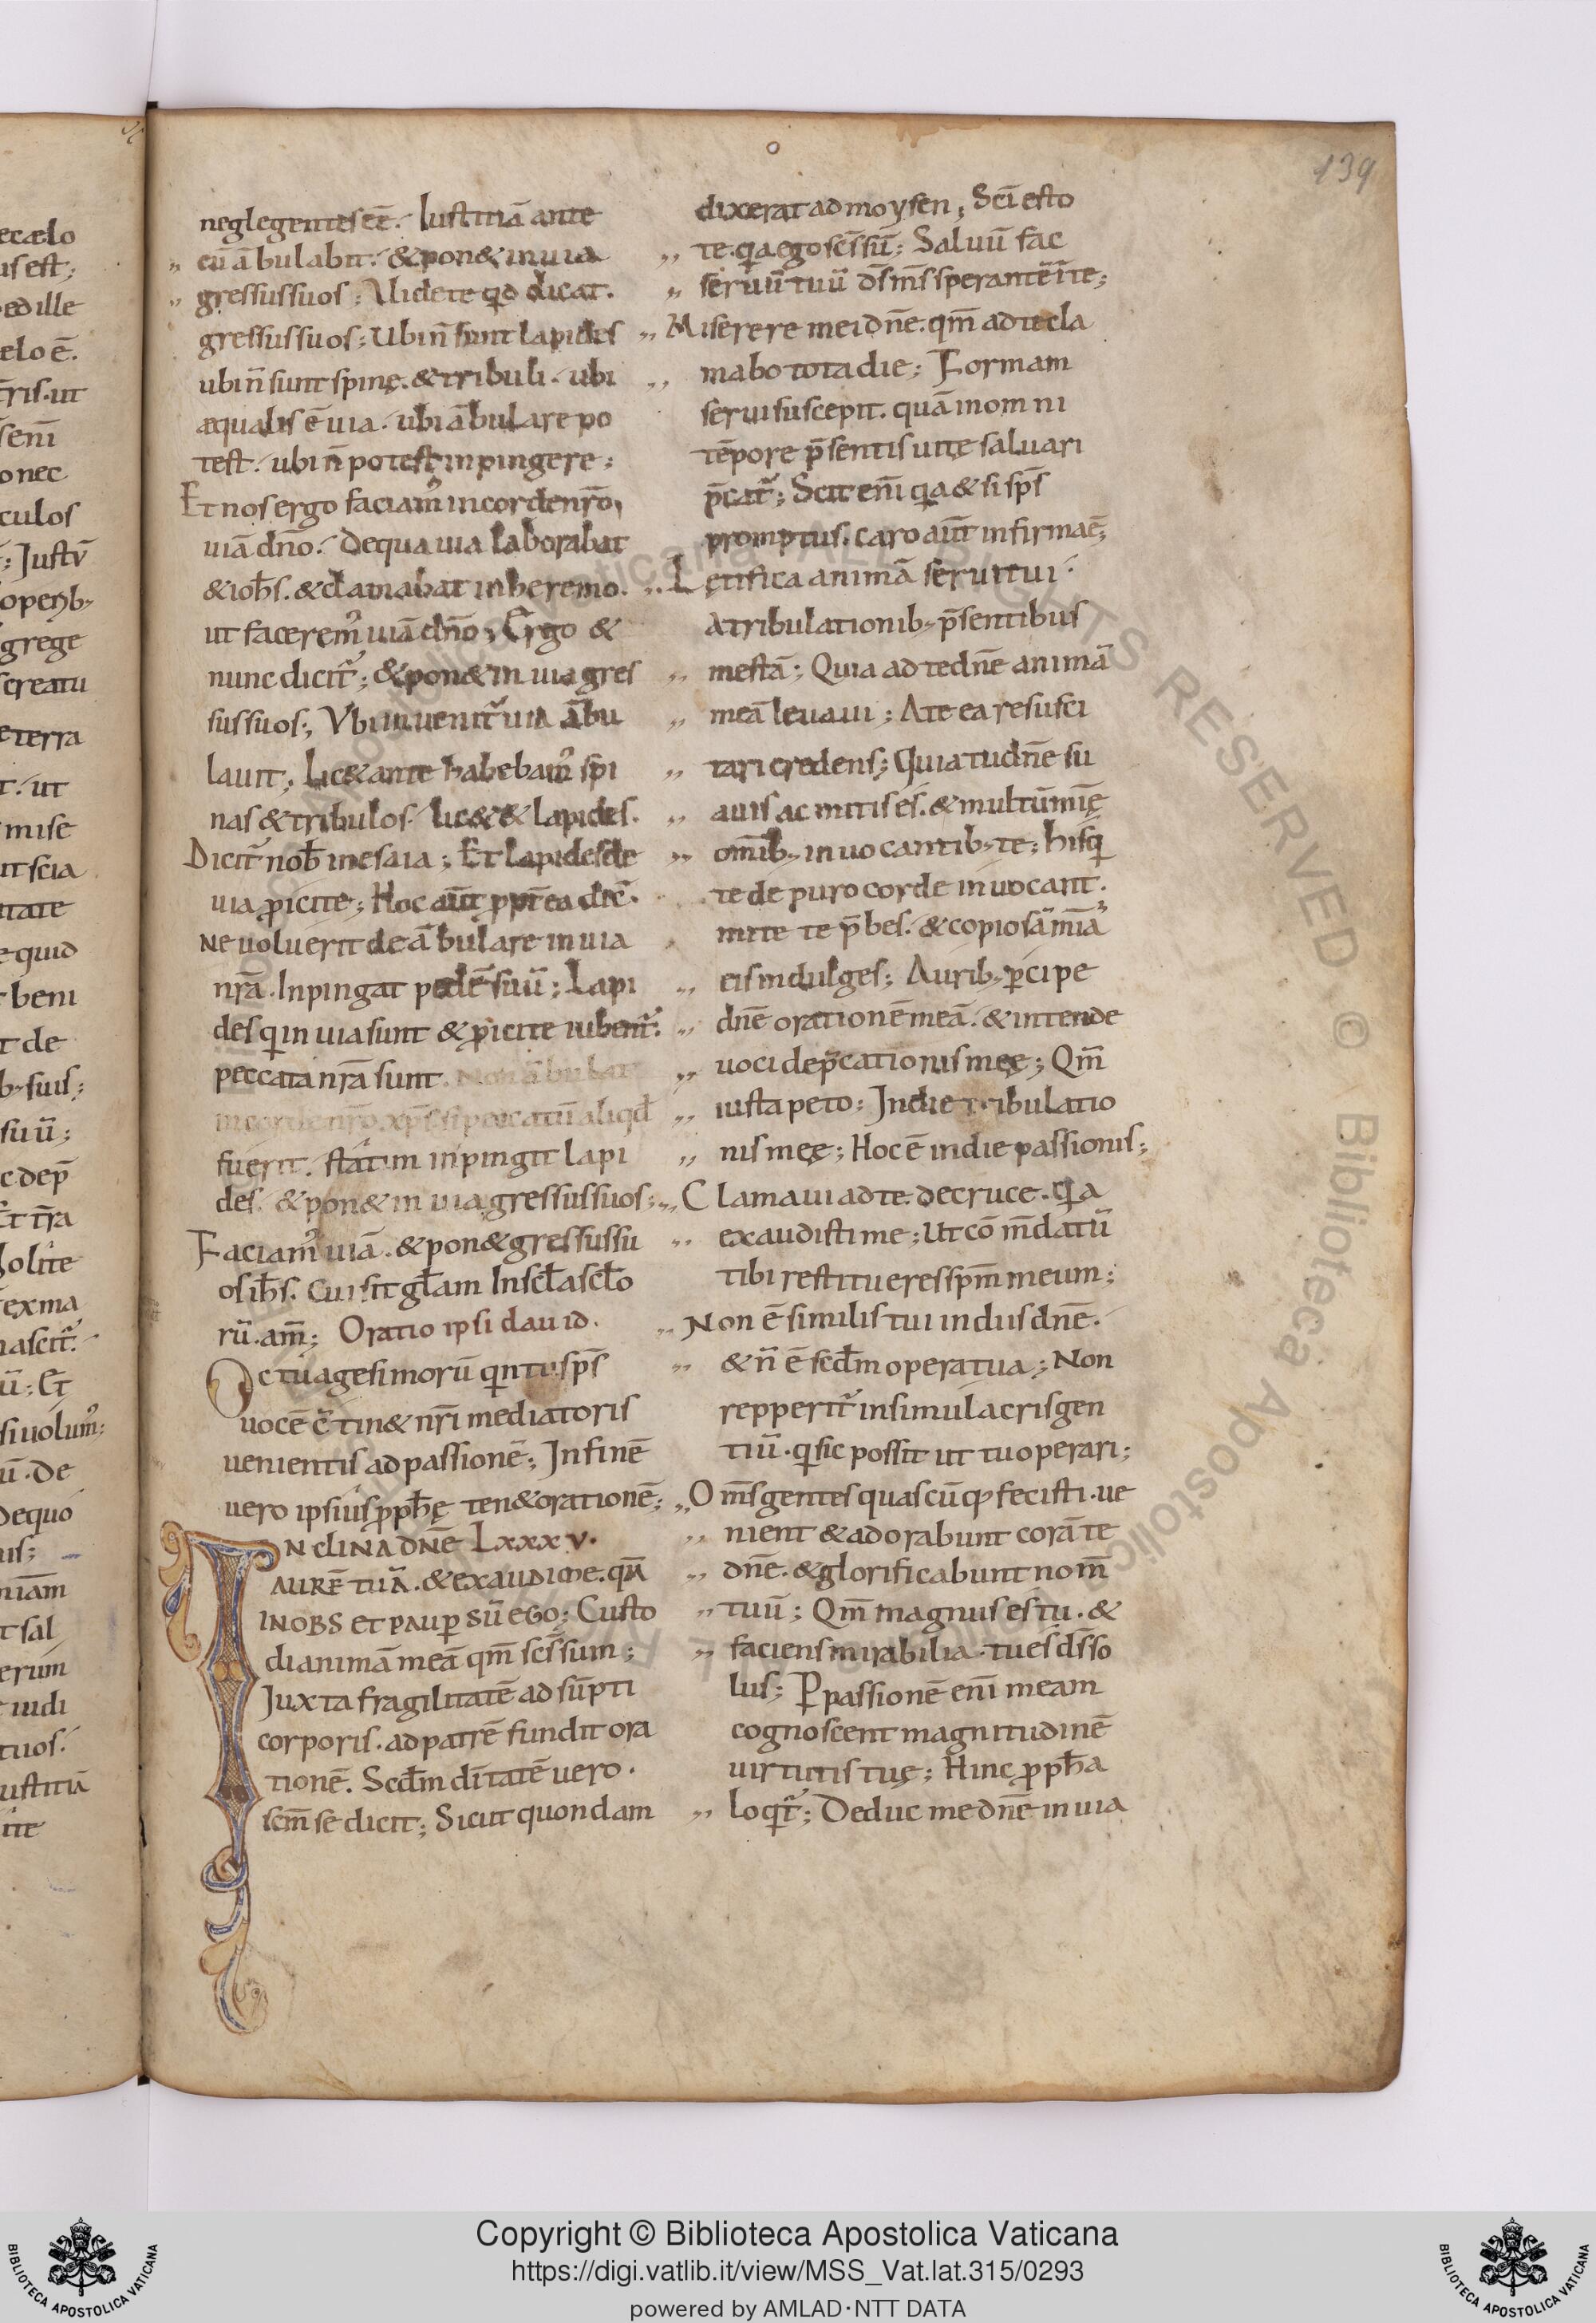 139
neglegentes eē. Iustitiā ante
eū ābulabit. & pon& in uia
gressus suos; Uidete qd dicat.
gressus suos; Ubi n̄ sunt lapides
ubi n̄ sunt spinę. & tribuli. ubi
aequalis ē uia. ubi ābulare po
test. ubi n̄ potest inpingere;
Et nos ergo faciam᷒ in corde nr̄o,
uiā dn̄o. De qua uia laborabat
& ioħs. & clamabat in heremo.
ut facerem᷒ uiā dn̄o; Ergo &
nunc dicit᷑; & pon& in uia gres
sus suos; Vbi inuenit᷑ uia ābu
lauit; lic& ante habebam᷒ spi
nas & tribulos. lic& & lapides.
Dicit᷑ nob̄ in esaia; Et lapides de
uia ꝓicite; Hoc aūt ꝓpt̄ea dic̄.
Ne uoluerit deābulare in uia
nr̄a. Inpingat pedē suū; Lapi
des qi in uia sunt & ꝓicite iubent᷑.
peccata nr̄a sunt. Non ābulat
in corde nr̄o xp̄s. si peccatū aliqd
fuerit. statim inpingit lapi
des. & pon& in uia gressus suos;
Faciam᷒ uiā. & pon& gressus su
os ih̄s. cui sit gł̄am In scł̄a scł̄o
rū. am̄; Oratio ipsi dauid.
Octuagesimorū qintus ps̄
uocē c̄tin& nr̄i mediatoris
uenientis ad passionē; In finē
uero ipsius ꝓpħę ten& orationē;
INCLINA DNĒ LXXXV.
AURĒ TUĀ. & EXAUDI ME. qm̄
INOBS ET PAUꝑ SŪ EGO; Custo
di animā meā qm̄ scs̄ sum;
Iuxta fragilitatē adsūpti
corporis. ad patrē fundit ora
tionē. Scd̄m dītatē uero.
scm̄ se dicit; Sicut quondam
dixerat ad moysen; Sc̄i esto
te. qia ego scs̄ sū; Saluū fac
seruū tuū ds̄ ms̄ sperantē ī te;
Miserere mei dn̄e. qm̄ ad te cla
mabo tota die; Formam
serui suscepit. quā in omni
tēpore p̄sentis uitę saluari
p̄cat᷑; Scit enī qia & si sp̄s
promptus. caro aūt infirma ē;
Lętifica animā serui tui.
A tribulationib; p̄sentibus
mestā; Quia ad te dn̄e animā
meā leuaui; A te ea resusci
tari credens; Quia tu dn̄e su
auis ac mitis es. & multū mię
om̄ib; inuocantib; te; His qi
te de puro corde inuocant.
mitē te p̄bes. & copiosā miā
eis indulges; Aurib; ꝑcipe
dn̄e orationē meā. & intende
uoci dep̄cationis meę; Qm̄
iusta peto; In die tribulatio
nis meę; Hoc ē in die passionis;
Clamaui ad te de cruce. qia
exaudisti me; Ut cōm̄datū
tibi restitueres sp̄m meum;
Non ē similis tui in diis dn̄e.
& n̄ ē scd̄m opera tua; Non
repperit᷑ in simulacris gen
tiū. qi sic possit ut tu operari;
Om̄s gentes quascūq; fecisti. ue
nient & adorabunt corā te
dn̄e. & glorificabunt nom̄
tuū; Qm̄ magnus es tu. &
faciens mirabilia. tu es ds̄ so
lus; Ꝑ passionē enī meam
cognoscent magnitudinē
uirtutis tuę; Hinc ꝓpħa
loqit᷑; Deduc me dn̄e in uia
ecaelo
us est;
ed ille
elo ē.
r̄is. ut
senī
onec
culos
; Iustū
operib;
grege
screatu
e terra
t. ut
mise
ut scia
ritate
e quid
beni
t de
b; suis;
suū;
c dep̄
Et tr̄a
golite
ex ma
nascit᷑.
ū; Et
si uolum᷒;
ū. De
De quo
us;
niām
t sal
erum
uidi
tuos.
ustitiā
ite
BIBLIOTECA APOSTOLICA VATICANA
Copyright © Biblioteca Apostolica Vaticana
https://digi.vatlib.it/view/MSS_Vat.lat.315/0293
powered by AMLAD·NTT DATA
BIBLIOTECA APOSTOLICA VATICANA